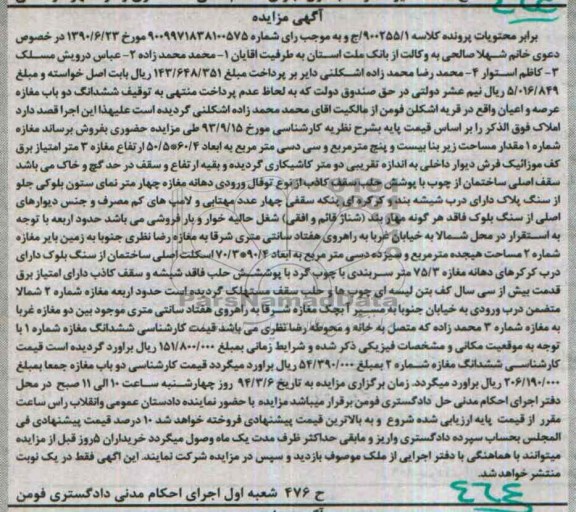 آگهی مزایده
برابر محتویات پرونده کلاسه ۹۰۰۲۵۵/۱/ج و به موجب رای شماره ۹۰۰۹۹۷۱۸۳۸۱۰۰۵۷۵ مورخ ۱۳۹۰/۶/۲۳ در خصوص
دعوی خانم شهلا صالحی به وکالت از بانک ملت استان به طرفیت اقایان ۱- محمد محمد زاده ۲- عباس درویش مسلک
۳- کاظم استوار ۴- محمد رضا محمد زاده اشکلنی دایر بر پرداخت مبلغ ۱۴۳/۶۴۸/۳۵۱ ریال بابت اصل خواسته و مبلغ
۵/۰۱۶/۸۴۹ ریال نیم عشر دولتی در حق صندوق دولت که به لحاظ عدم پرداخت منتهی به توقیف ششدانگ دو باب مغازه
عرصه و اعیان واقع در قریه اشکلن فومن از مالکیت اقای محمد محمد زاده اشکلنی گردیده است علیهذا این اجرا قصد دارد
املاک فوق الذکر را بر اساس قیمت پایه بشرح نظریه کارشناسی مورخ ۹۳/۹/۱۵ طی مزایده حضوری بفروش برساند مغازه
شماره ۱ مقدار مساحت زیر بنا بیست و پنج مترمربع و سی دسی متر مربع به ابعاد ۵/۵۰*۴/۶۰ ارتفاع مغازه ۳ متر امتیاز برق
کف موزائیک فرش دیوار داخلی به اندازه تقریبی دو متر کاشیکاری گردیده و بقیه ارتفاع و سقف در حد گچ و خاک می باشد
سقف اصلی ساختمان از چوب با پوشش حلب سقف کاذب از نوع توفال ورودی دهانه مغازه چهار متر نمای ستون بلوکی جلو
از سنگ پلاک دارای درب شیشه بند و کرکره پنکه سقفی چهار عدد مهتابی و لامپ های کم مصرف و جنس دیوارهای
اصلی از سنگ بلوک فاقد هر گونه مهار بند (شناژ قائم و افقی) شغل حالیه خوار و بار فروشی می باشد حدود اربعه با توجه
به استقرار در محل شمالا به خیابان غربا به راهروی هفتاد سانتی متری شرقا به مغازه رضا نظری جنوبا به زمین بایر مغازه
شماره ۲ مساحت هیجده مترمربع و سیزده دسی متر مربع به ابعاد ۴/۹۰*۳/۷۰ اسکلت اصلی ساختمان از سنگ بلوک دارای
درب کرکرهای دهانه مغازه ۳/۷۵ متر سربندی با چوب گرد با پوشش حلب فاقد شیشه و سقف کاذب دارای امتیاز برق
قدمت بیش از سی سال کف بتن لیسه ای چوب ها و سقف مستهلک گردیده است حدود اربعه مغازه شماره ۲ شمالا
متضمن درب ورودی به خیابان جنوبا به مسیر آبچک مغازه شرقا به راهروی هفتاد سانتی متری موجود بین دو مغازه غربا
به مغازه شماره ۳ محمد زاده که متصل به خانه و محوطه رضا نظری می باشد قیمت کارشناسی ششدانگ مغازه شماره ۱ با
توجه به موقعیت مکانی و مشخصات فیزیکی ذکر شده و شرایط زمانی بمبلغ ۱۵۱/۸۰۰/۰۰۰ ریال براورد گردیده است قیمت
کارشناسی ششدانگ مغازه شماره ۲ بمبلغ ۵۴/۳۹۰/۰۰۰ ریال براورد میگردد قیمت کارشناسی دو باب مغازه جمعا بمبلغ
۲۰۶/۱۹۰/۰۰۰ ریال براورد میگردد. زمان برگزاری مزایده به تاریخ ۹۴/۳/۶ روز چهارشنبه ساعت ۱۰ الی ۱۱ صبح در محل
دفتر اجرای احکام مدنی حل دادگستری فومن برقرار میباشد مزایده با حضور نماینده دادستان عمومی وانقلاب راس ساعت
مقرر از قیمت پایه ارزیابی شده شروع و به بالاترین قیمت پیشنهادی فروخته خواهد شد ۱۰ درصد قیمت پیشنهادی فی
المجلس بحساب سپرده دادگستری واریز و مابقی حداکثر ظرف مدت یک ماه وصول میگردد خریداران ۵روز قبل از مزایده
میتوانند با هماهنگی با دفتر اجرایی از ملک موصوف بازدید و سپس در مزایده شرکت نمایند. این اگهی فقط در یک نوبت
منتشر خواهد شد.
ح ۴۷۶ شعبه اول اجرای احکام مدنی دادگستری فومن
ParsNamadData